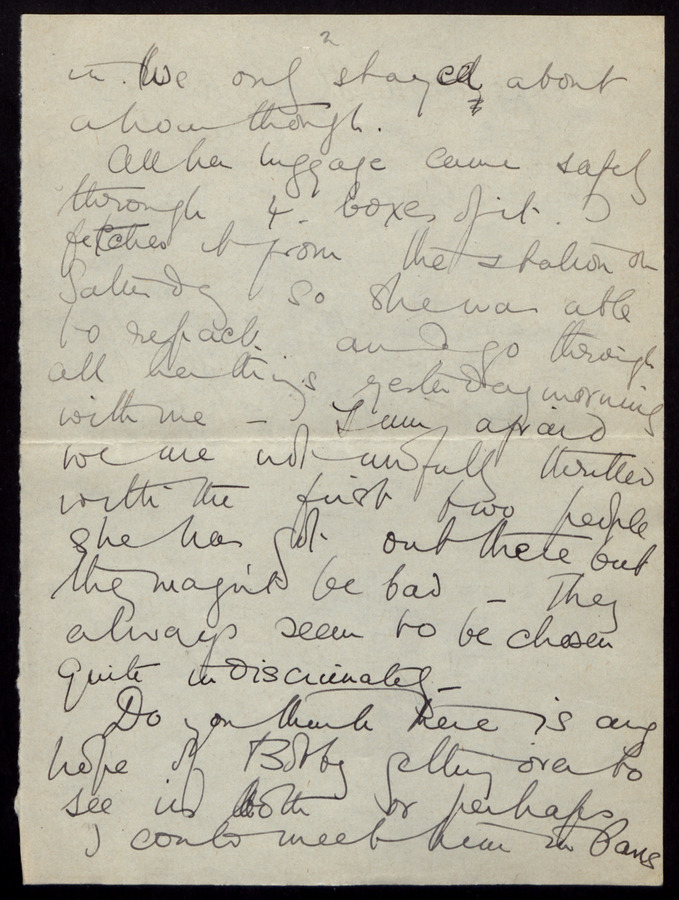 2
in. We only stayed about
a hour though.
All her luggage came safely
through 4 boxes of it. I
fetched it from the station on
Saturday so she was able
to repack and go through
all her things yesterday morning
with me – I am afraid
we are not awfully thrilled
with the first two people
she has got out there but
they might be bad – They
always seem to be chosen
quite indiscriminately –
Do you think there is any
hope of Bobby getting over to
see us both or perhaps
I could meet him in Paris